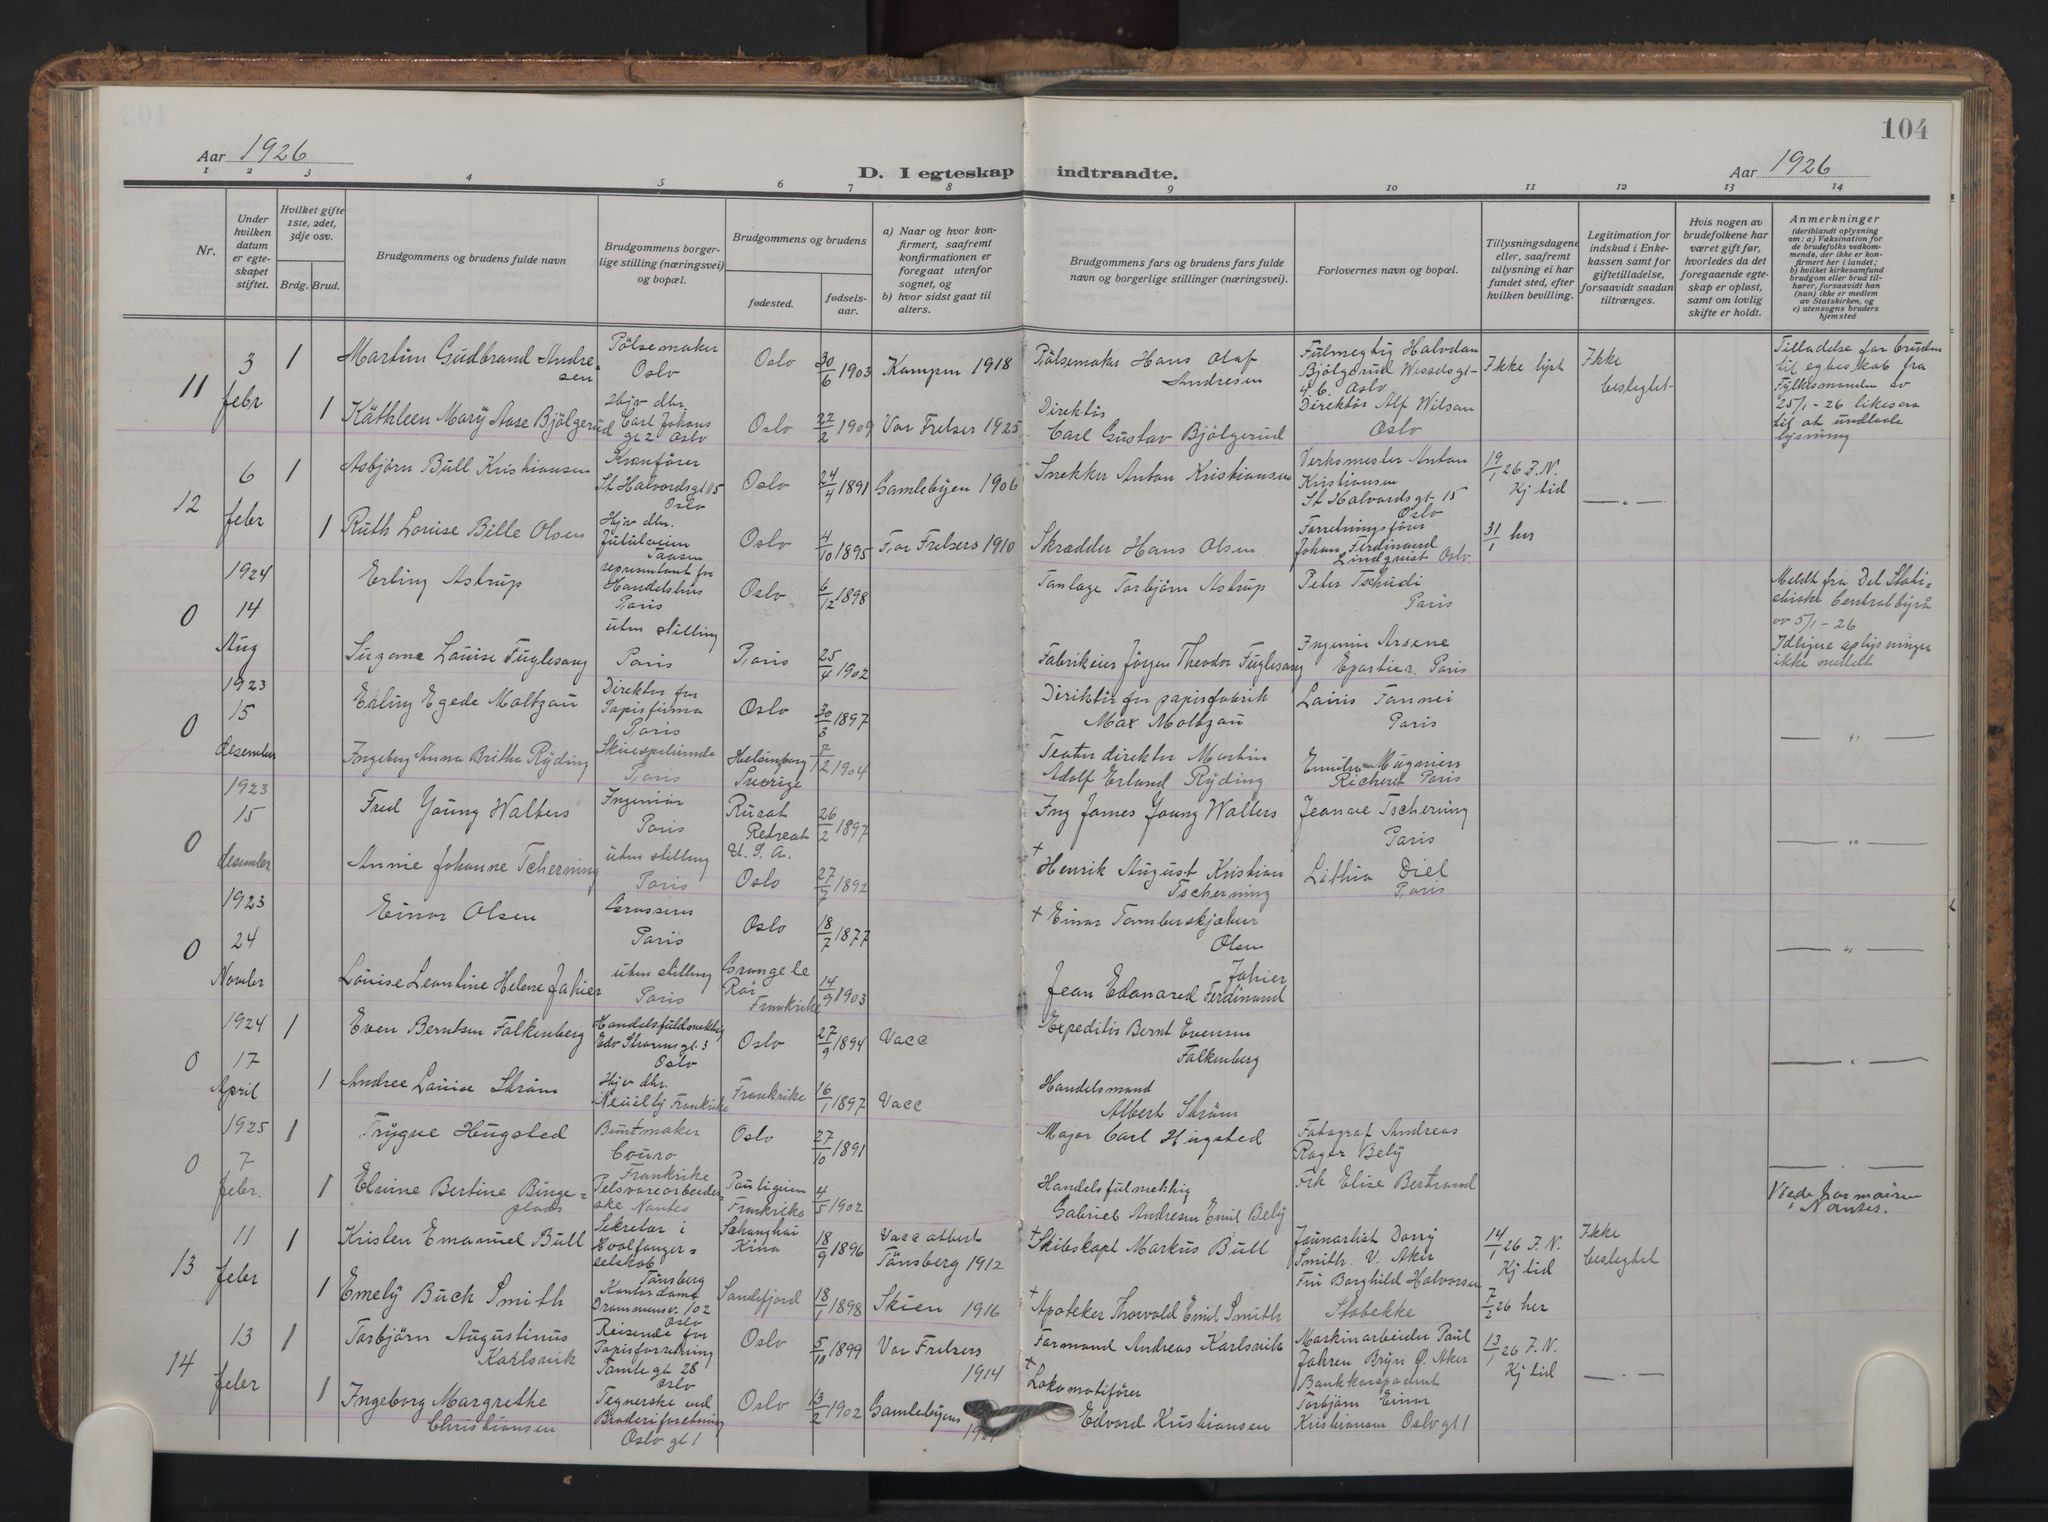 104
Aar 1926
D. I egteskap indtraadte.
Aar 1926
1 2 3 4 5 6 7 8 9 10 11 12 13 14
Nr.
Under hvilken datum er egteskapet stiftet.
Hvilket gifte 1ste, 2det, 3dje osv.
Brdg. Brud.
Brudgommens og brudens fulde navn
Brudgommens borgerlige stilling (næringsvei) og bopæl.
Brudgommens og brudens
fødested.
fødselsaar.
a) Naar og hvor konfirmert, saafremt konfirmationen er foregaat utenfor sognet, og
b) hvor sidst gaat til alters.
Brudgommens fars og brudens fars fulde navn og borgerlige stillinger (næringsvei).
Forlovernes navn og bopæl.
Tillysningsdagene eller, saafremt tillysning ei har fundet sted, efter hvilken bevilling.
Legitimation for indskud i Enkekassen samt for giftetilladelse, forsaavidt saadan tiltrænges.
Hvis nogen av brudefolkene har været gift før, hvorledes da det foregaaende egteskap er opløst, samt om lovlig skifte er holdt.
Anmerkninger
(deriblandt oplysning om: a) Vaksination for de brudefolks vedkommende, der ikke er konfirmert her i landet; b) hvilket kirkesamfund brudgom eller brud tilhører, forsaavidt han (hun) ikke er medlem av Statskirken, og c) utensogns bruders hjemsted
11 3 febr 1 Martin Gudbrand Andresen Pölsemaker Oslo Oslo 30/6 1903 Kampen 1918 Pölsemaker Hans Olaf Andresen Fulmegtig Halvdan Bjölgerud Wesselsgt 4 b. Oslo Ikke lyst Ikke beslegtet Tilladelse for bruden til egteskab fra Fylkesmanden av 25/1-26 likesaa til at undlade lysning
1 Käthleen Mary Aase Bjölgerud Hjv dtr. Carl Johans gt 2 Oslo Oslo 22/2 1909 Vor Frelser 1925 Direktör Carl Gustav Bjölgerud Direktör Alf Wilson Oslo
12 6 febr 1 Asbjörn Bull Kristiansen Kranförer St Halvordsgt 15 Oslo Oslo 24/4 1891 Gamlebyen 1906 Snekker Anton Kristiansen Verksmester Anton Kristiansen St Halvordsgt 15 Oslo 19/1 26 F. N. Kj tid — " —
1 Ruth Louise Bille Olsen Hjv dtr. Jutulveien Oslo 4/10 1895 Vor Frelsers 1910 Skrædder Hans Olsen Forretningsförer Johan Ferdinand Lindquist Oslo 31/1 her
0 1924 14 Aug Erling Astrup representant for Handelshus Paris Oslo 6/12 1898 Tanlæge Torbjörn Astrup Peter Tschudi Paris Meldt fra Det Statistiske Centralbyrå av 5/1-26 Ydligere oplysninger ikke meddelt
Suzane Louise Fuglesang uten stilling Paris Paris 25/4 1902 Fabrikeier Jörgen Theodor Fuglesang Ingeniör Arsene Epartier Paris
0 1923 15 desember Erling Egede Moltzau Direktör for Papirfirma Paris Oslo 30/3 1897 Direktör for papirfabrik Max Moltzau Paris — " —
Ingeborg Anna Britha Ryding Skuespilerinde Paris Helsinborg Sverige 7/12 1904 Teaterdirektör Martin Adolf Erland Ryding Richeret Paris
0 1923 15 desember Fred Young Walters Ingeniör Paris Retreat U. S. A. 26/2 1897 Ing James Young Walters Jeanne Tscherning Paris — " —
Annie Johanne Tcherning uten stilling Paris Oslo 27/7 1892 † Henrik August Kristian Tscherning Lithia Diel Paris
0 1923 24 Novber Einar Olsen Grosserer Paris Oslo 18/7 1877 † Einar Tamberskjelver Olsen — " —
Louise Leontine Helene Jahier uten stilling Paris Grangele Roi Frankrike 14/9 1903 Jean Edouared Ferdinand Jahier
0 1924 17 April 1 Even Berntsen Falkenberg Handelsfuldmektig Edv Stormsgt. 3 Oslo Oslo 27/9 1894 Vacc Expeditör Bernt Evensen Falkenberg — " —
1 Andree Louise Ström Hjv dtr. Neuilly Frankrike Frankrike 16/1 1897 Vacc Handelsmand Albert Ström
0 1925 7 febr. 1 Trygve Hugsted Buntmaker Frankrike Oslo 27/10 1891 Major Carl Hugsted Fotograf Andreas Roger Bely — " —
1 Bertine Bingeplads Pelsvarearbeiderske Nantes Frankrike 4/5 1902 Handelsfulmektig Gabriel Andresen Emil Bely Frk Elise Bertrand Nantes.
13 11 febr 1 Kristen Emanuel Bull Sekretær i Hvalfangerselskab Tönsberg Schanghai Kina 18/9 1896 Vacc attest Tönsberg 1912 † Skibskapt Markus Bull Journalist Dorry Smith. V. Aker 14/1 26 F. N. Kj tid Ikke beslegtet
1 Emely Buch Smith Kontordame Drammensv. 102 Oslo Sandefjord 18/1 1898 Skien 1916 † Apoteker Thorvald Emil Smith Fru Borghild Halvorsen Stabekke 7/2 26 her
14 13 febr 1 Torbjörn Augustinus Karlsvik Reisende for Papirforretning Tomtegt 28 Oslo Oslo 5/10 1899 Vor Frelsers 1914 Formand Andreas Karlsvik Maskinarbeider Paul Jahren Bryn Ö. Aker 13/1 26 F. N. Kj tid — " —
1 Ingeborg Margrethe Christiansen Tegnerske ved Broderiforetning Oslo gt 1 Oslo 13/2 1902 Gamlebyens † Lokomotiförer Edvard Kristiansen Torbjörn Einar Kristiansen Oslo gt 1